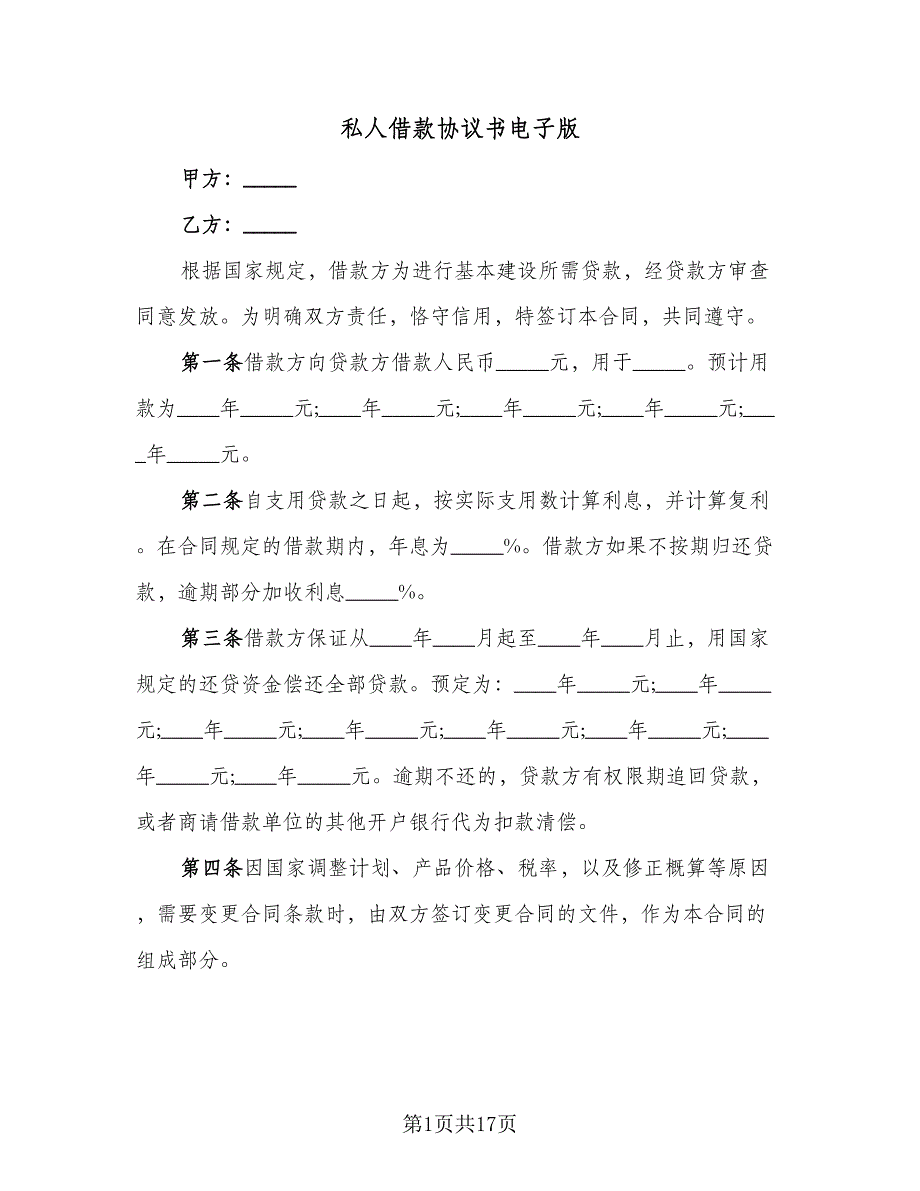 私人借款协议书电子版
甲方：_____
乙方：_____
根据国家规定，借款方为进行基本建设所需贷款，经贷款方审查
同意发放。为明确双方责任，恪守信用，特签订本合同，共同遵守。
第一条借款方向贷款方借款人民币_____元，用于_____。预计用
款为____年_____元;____年_____元;____年_____元;____年_____元;___
_年_____元。
第二条自支用贷款之日起，按实际支用数计算利息，并计算复利
。在合同规定的借款期内，年息为_____%。借款方如果不按期归还贷
款，逾期部分加收利息_____%。
第三条借款方保证从____年____月起至____年____月止，用国家
规定的还贷资金偿还全部贷款。预定为：____年_____元;____年_____
元;____年_____元;____年_____元;____年_____元;____年_____元;____
年_____元;____年_____元。逾期不还的，贷款方有权限期追回贷款，
或者商请借款单位的其他开户银行代为扣款清偿。
第四条因国家调整计划、产品价格、税率，以及修正概算等原因
，需要变更合同条款时，由双方签订变更合同的文件，作为本合同的
组成部分。
第1页共17页